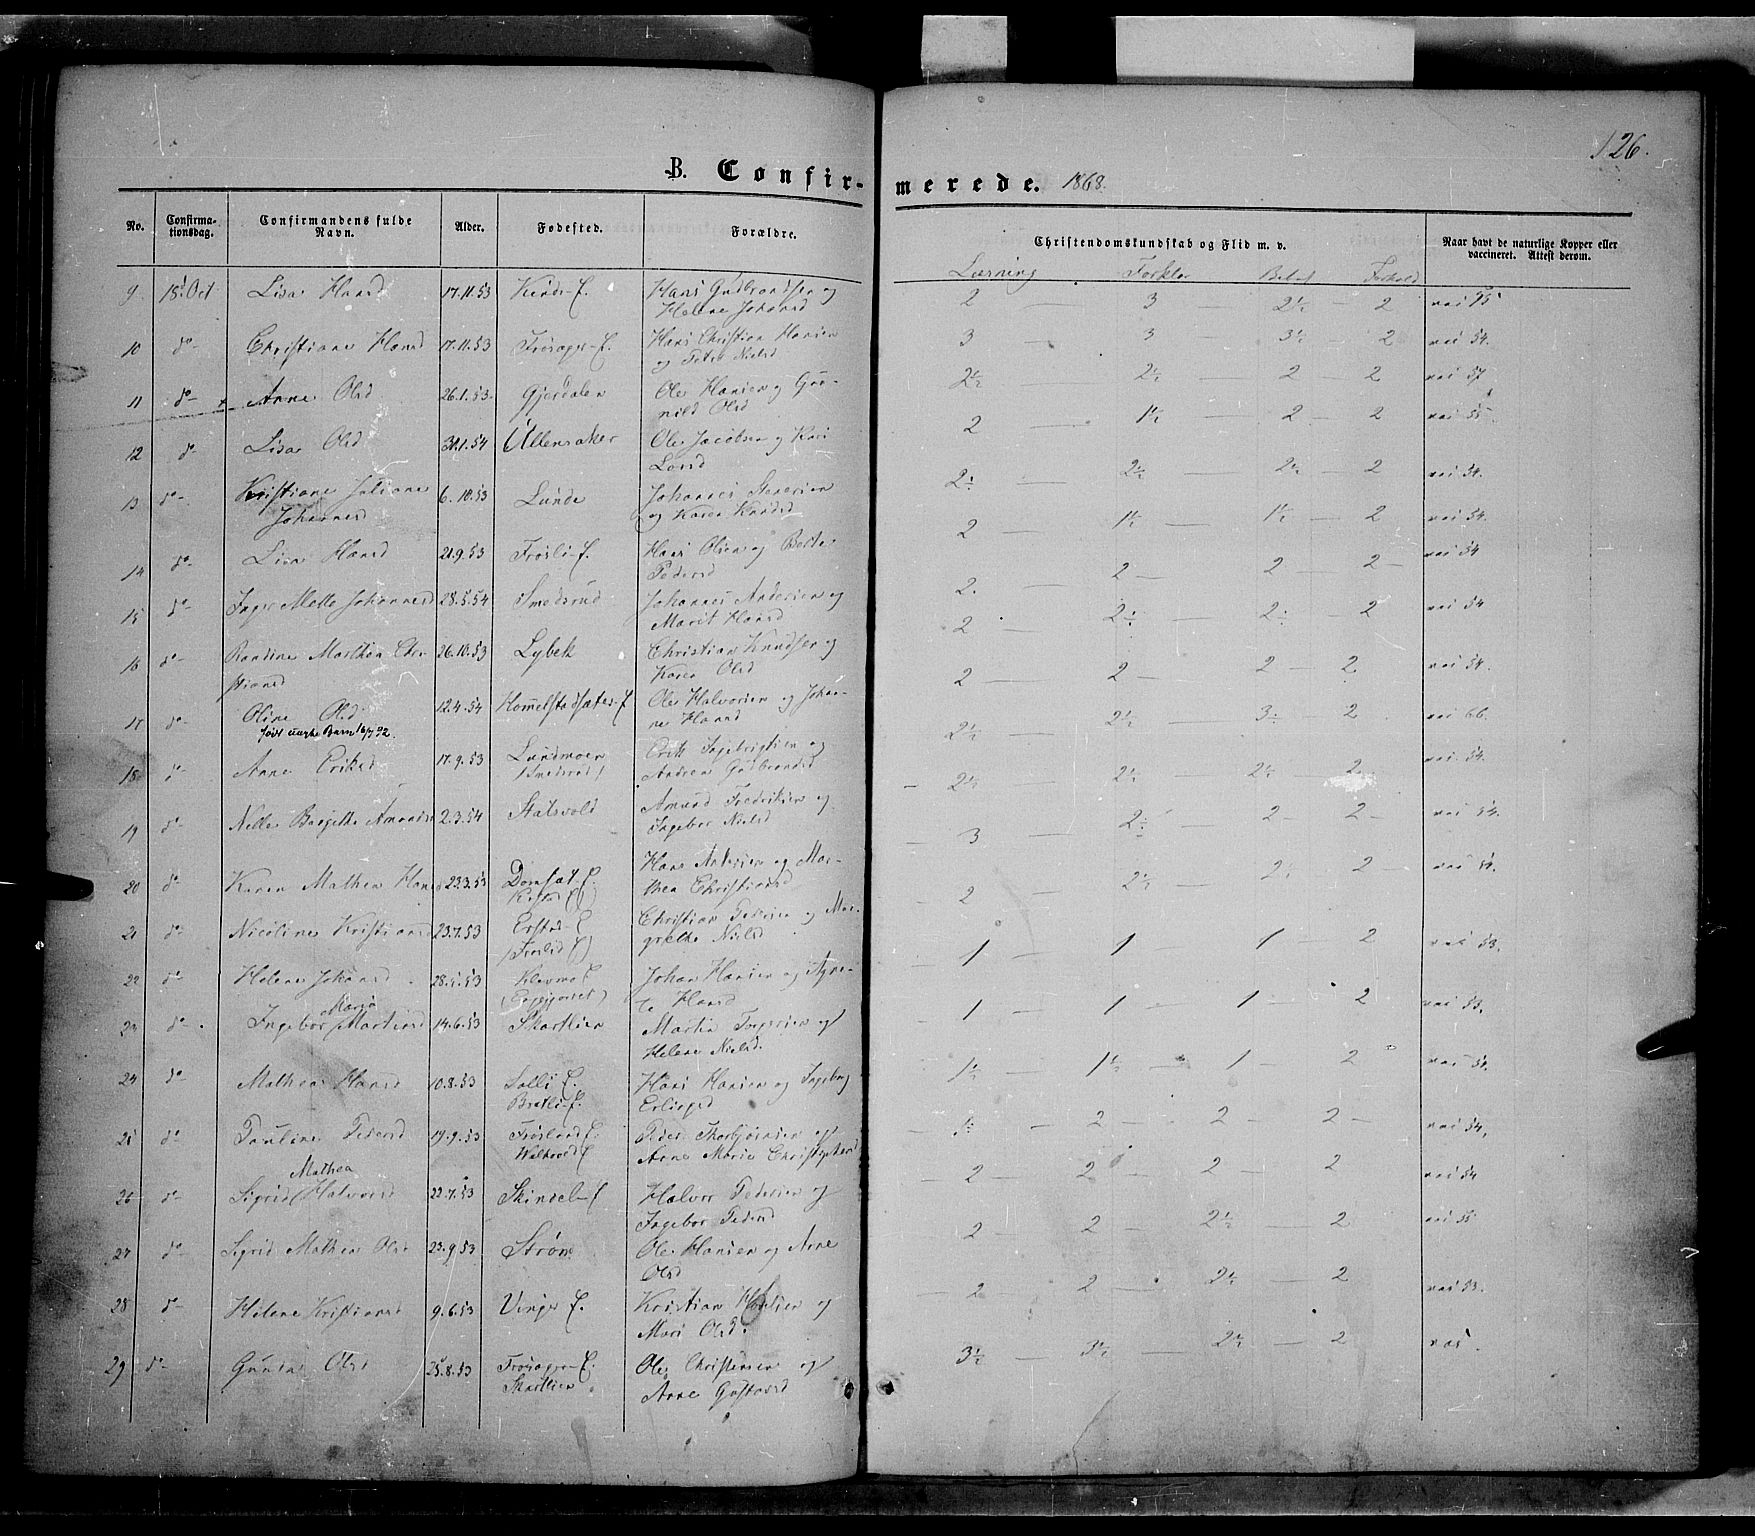 126.
B. Confirmerede. 1868.
No. Confirmationsdag. Confirmandens fulde Navn. Alder. Fødested. Forældre. Christendomskundskab og Flid m. v. Naar havt de naturlige Kopper eller vaccineret. Attest derom.
Læsning Forklar Forhold
9 18 Oct Lisa Hansd 17.11.53 Hans Gudbrandsen og 2 3 2½ 2
Helene Johansd
10 do Christiane Hansd 17.11.53 Frösager E. Hans Christian Hansen 3 3 3½ 2 vac 54.
og Petra Nielsd
11 do Anne Olsd 26.1.53. Gjerdalen Ole Hansen og Gu- 2½ 2½ 2 2 vac 57
nild Olsd
12 do Lisa Olsd 31.1.54 Ullensaker Ole Jacobsen og Kari 2 1½ 2 2 vac 55
Larsd
13 do Kristiane Juliane 6.10.53 Lunde Johannes Stenersen 2½ 2½ 2½ 2 vac 54.
Johannesd og Karen Knudsd
14 do Lisa Hansd 21.9.53 Frösli E. Hans Olsen og Berte 2 1½ 1½ 2 vac 54.
Pedersd
15 do Inger Mette Johannesd 28.5.54 Smedsrud Johannes Andersen og 2. 2 2 2 vac 54
Marit Hansd
16 do Randine Marthea Chri 26.10.53 Lybek Christian Knudsen og 2 2½ 2½ 2 vac 54
stiansd Karen Olsd
17 do Oline Olsd 12.4.54 Hommelstadsæter E Ole Halvorsen og Johan- 2 2 2 2 vac 54.
født uægte Barn 16/7 92. ne Hansd
18 do Anne Eriksd 17.9.53 Lundmoen Erik Ingebrigtsen og 2½ 2½ 3½ 2 vac 66.
(Smedsrud) Andrea Gudbrandsd
19 do Nelle Birgitte Amunds 2.3.54 Statsvold Amund Fredriksen og 2½ 2½ 2½ 2 vac 54.
Ingebor Nielsd
20 do Karen Mathea Hansd 23.3.53 Hans Andersen og Mar- 3 2½ 2 2 vac 54.
thea Christiansd
21 do Nicoline Kristiansd 23.7.53 Erstad E Christian Pedersen og Mar- 2 2½ 2½ 2 vac 54.
(Froslid E) grethe Nielsd
22 do Helene Johansd 28.1.53 Klevmo E Johan Hansen og Agne- 1 1 1 2 vac 53.
te Hansd
Maria
23 do Ingebor Martinsd 14.6.53 Skartlien Martin Ingersen og 1 1 1 2 vac 53.
Helene Nielsd.
24 do Mathea Hansd 10.8.53 Solli E. Hans Hansen og Ingebrg 1½ 1½ 1 2 vac 54.
Bratli E. Erlingsd
25 do Pauline Pedersd 19.9.53 Peder Thorbjörnsen og 1½ 2 2 2 vac 54.
Anne Marie Christophersd
Mathea
26 do Sigrid Halvorsd 22.7.53 Skindel E Halvor Pedersen og 2 2 2 2 vac 54
Ingebor Pedersd
27 do Sigrid Mathea Olsd 23.9.53 Ström Ole Hansen og Anne 2 2 2½ 2 vac 55
Olsd
28 do Helene Kristiansd 9.6.53 Vinger E. Kristian og 2 2 2½ 2 vac 53.
Mari Olsd.
29 do Olsd 25.8.53 Frösager E. Ole Christensen og 3½ 3½ 2½ 2
Skartlien Anne Gustavsd